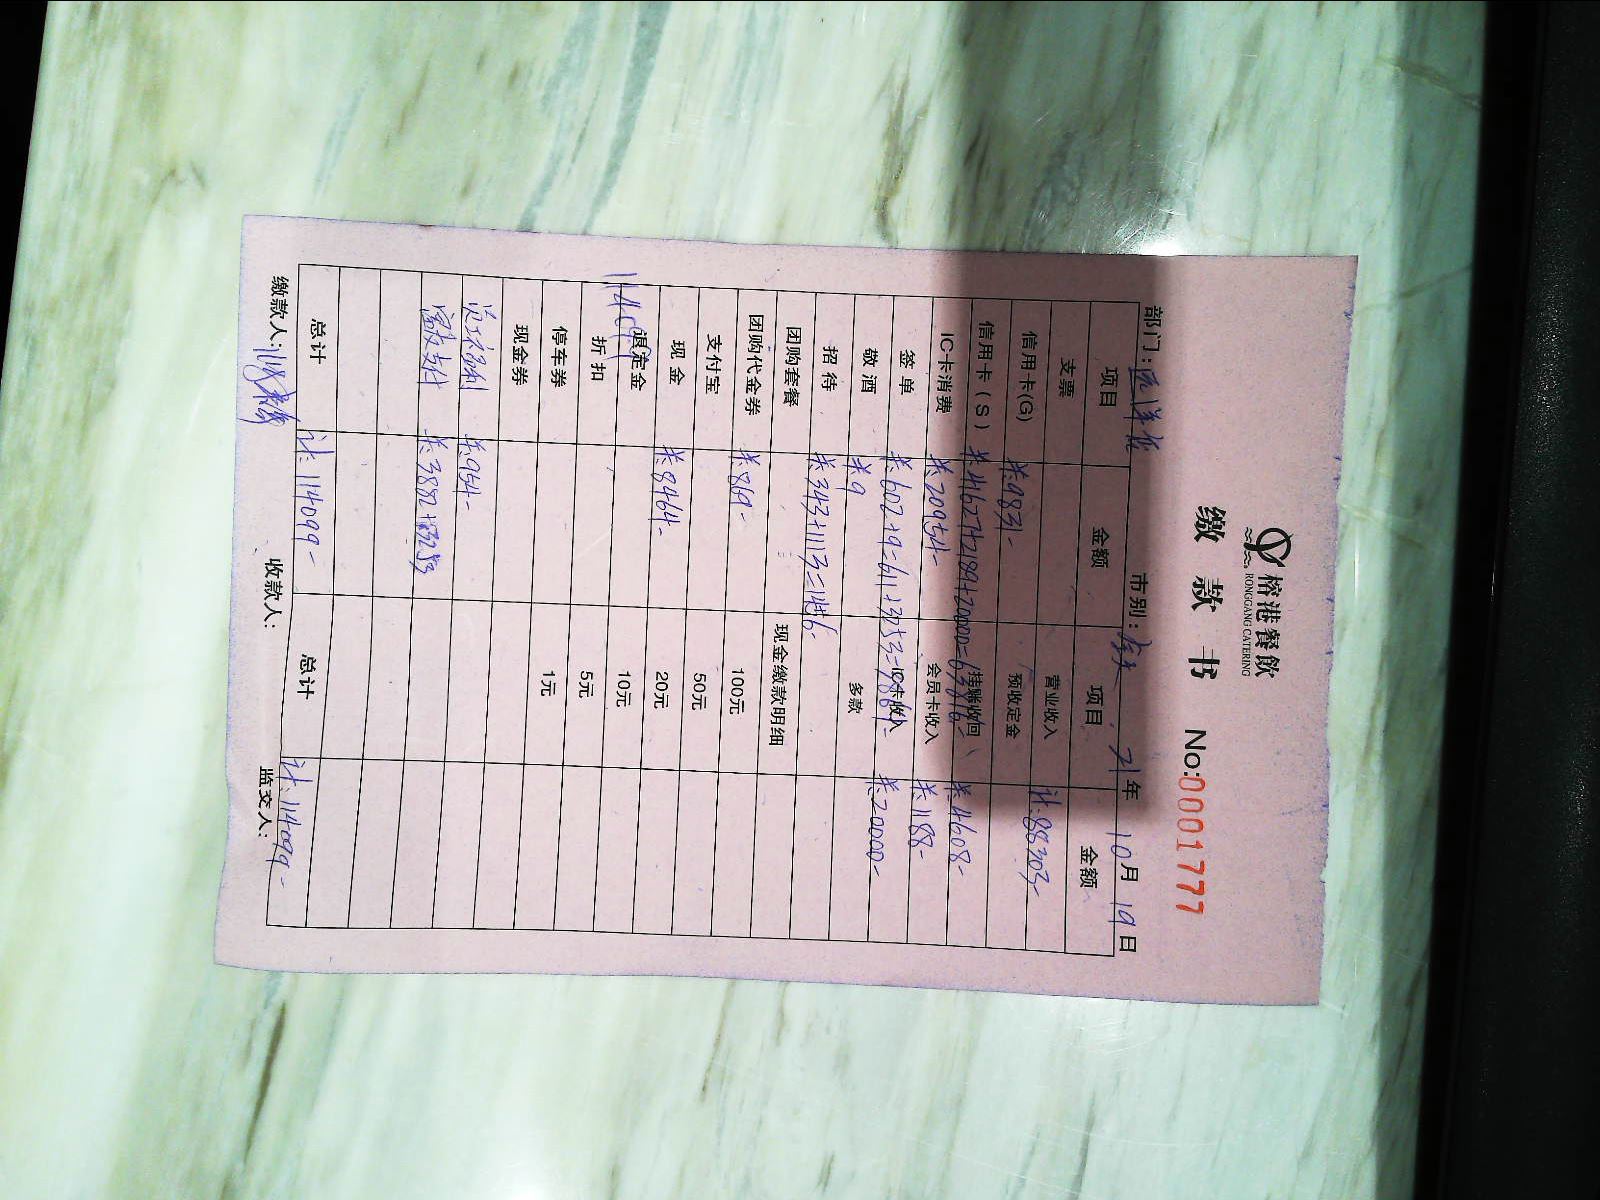 榕港餐飲
RONGGANG CATERING
缴 款 书 No:0001777
部门: 市别: 21年 10月 19日
项目 金额 项目 金额
支票 营业收入 计:88303-
信用卡(G) 羊:9831- 预收定金
信用卡(S) 羊:41627+2189+20000=63816- 挂账收回 羊:4608-
IC卡消费 羊:20954- 会员卡收入 羊:1188-
签单 羊:602+9=611+3253= IC卡收入 羊:20000-
敬酒 羊:9 多款
招待 羊:343+1113=1456-
团购套餐 现金缴款明细
团购代金券 羊:869- 100元
支付宝 50元
现金 羊:8464- 20元
退定金 114099 10元
折扣 5元
停车券 1元
现金券
羊:954-
羊:3882+3253
总计 计:114099- 总计 计:114099-
缴款人: 收款人: 监交人: